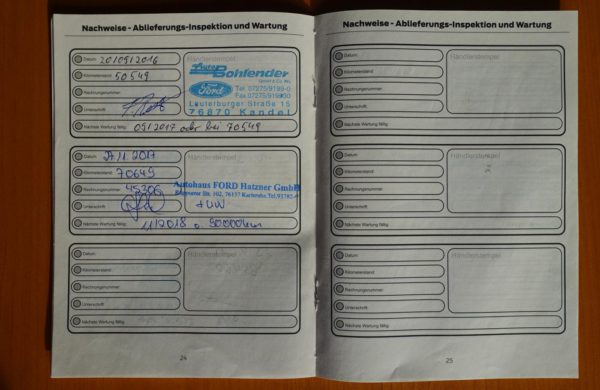 Nachweise - Ablieferungs-Inspektion und Wartung
Datum 20/09/2016
Kilometerstand 50549
Rechnungsnummer
Unterschrift
Nächste Wartung fällig: 09/2017 oder bei 70549
Händlerstempel
Auto Bohlender
GmbH & Co. KG
Ford
Tel. 07275/9199-0
Lauterburger Straße 15
76870 Kandel
Datum 27.11.2017
Kilometerstand 70649
Rechnungsnummer 45306
Unterschrift
Nächste Wartung fällig: 11/2018 o. 90000km
Händlerstempel
Autohaus FORD Hatzner GmbH
Str. 102, 76137 Karlsruhe,Tel.
Datum
Kilometerstand
Rechnungsnummer
Unterschrift
Nächste Wartung fällig:
Händlerstempel
24
Nachweise - Ablieferungs-Inspektion und Wartung
Datum
Kilometerstand
Rechnungsnummer
Unterschrift
Nächste Wartung fällig:
Händlerstempel
Datum
Kilometerstand
Rechnungsnummer
Unterschrift
Nächste Wartung fällig:
Händlerstempel
Datum
Kilometerstand
Rechnungsnummer
Unterschrift
Nächste Wartung fällig:
Händlerstempel
25